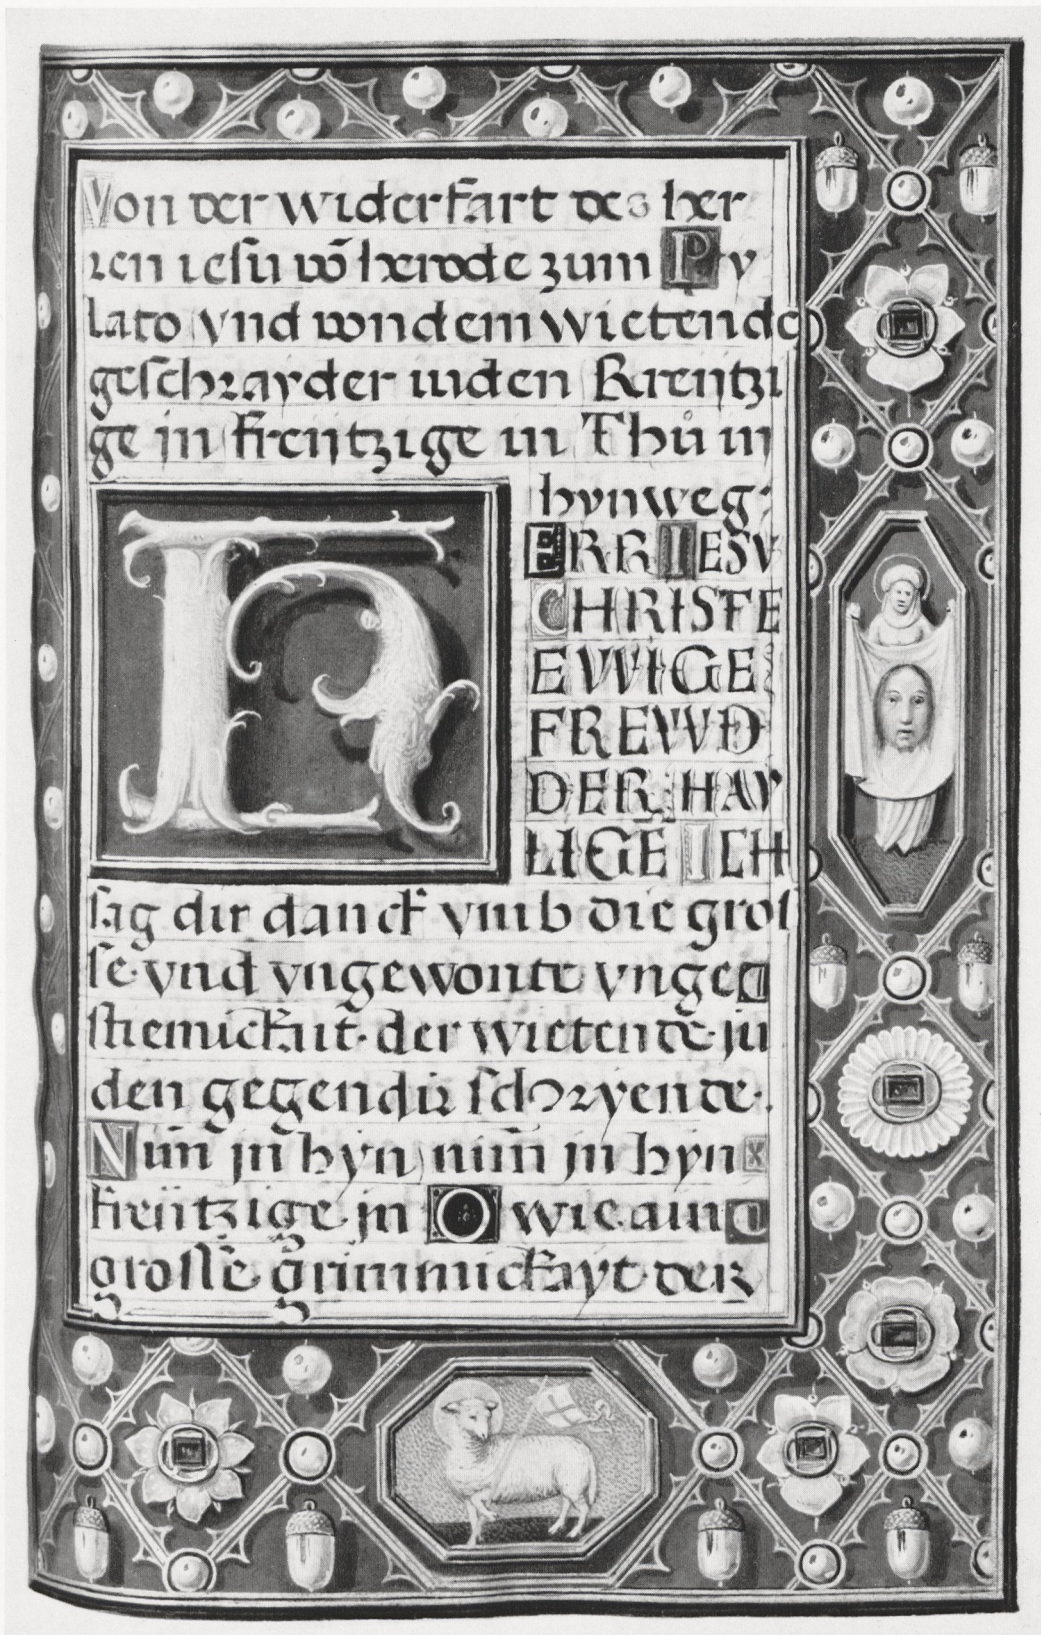 Von der widerfart des her
ren iesu võ herode zum Py
lato vnd von dem wietende
geschrayder iuden Kreytzi
ge in kreytzige in Thů in
hynweg:
HERR IESV
CHRISTE
EWIGE
FREWD
DER HAY
LIGĒ ICH
sag dir danck vmb die gros
se vnd vngewonte vnge
stiemickait der wietende ju
den gegen dir schryende.
Nim̄ jn hyn nim̄ jn hyn
kreützige jn O wie ain
grosse grimmickayt der